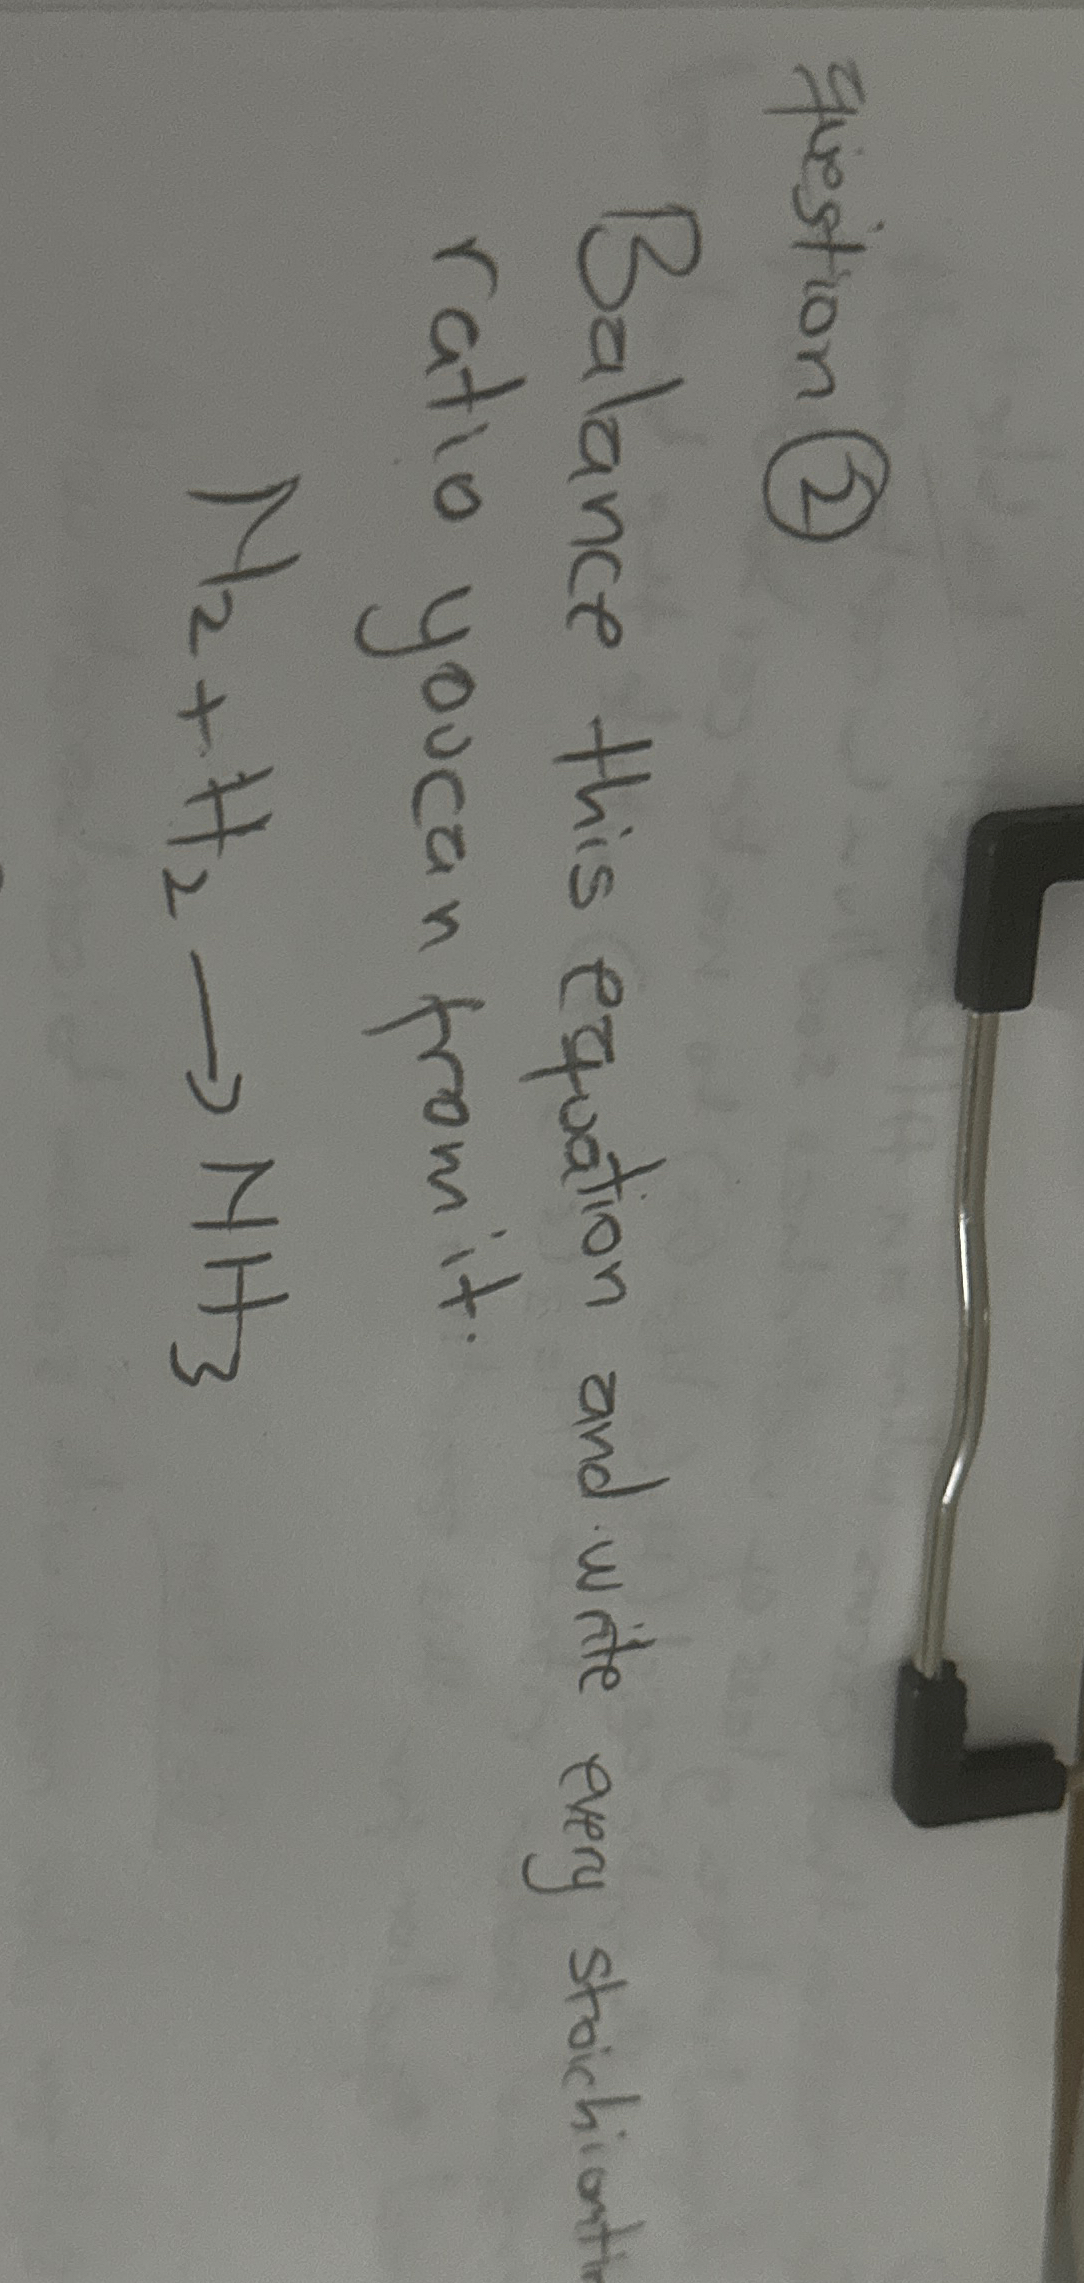 question ②
Balance this equation and write every
ratio you can from it.
N₂ + H₂ → NH₃